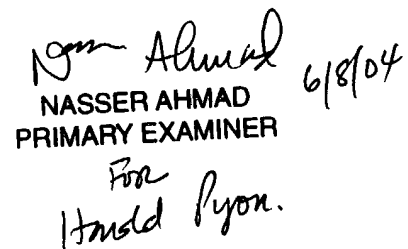 Nasser Ahmad 6/8/04
NASSER AHMAD
PRIMARY EXAMINER
For
Harold Pyon.